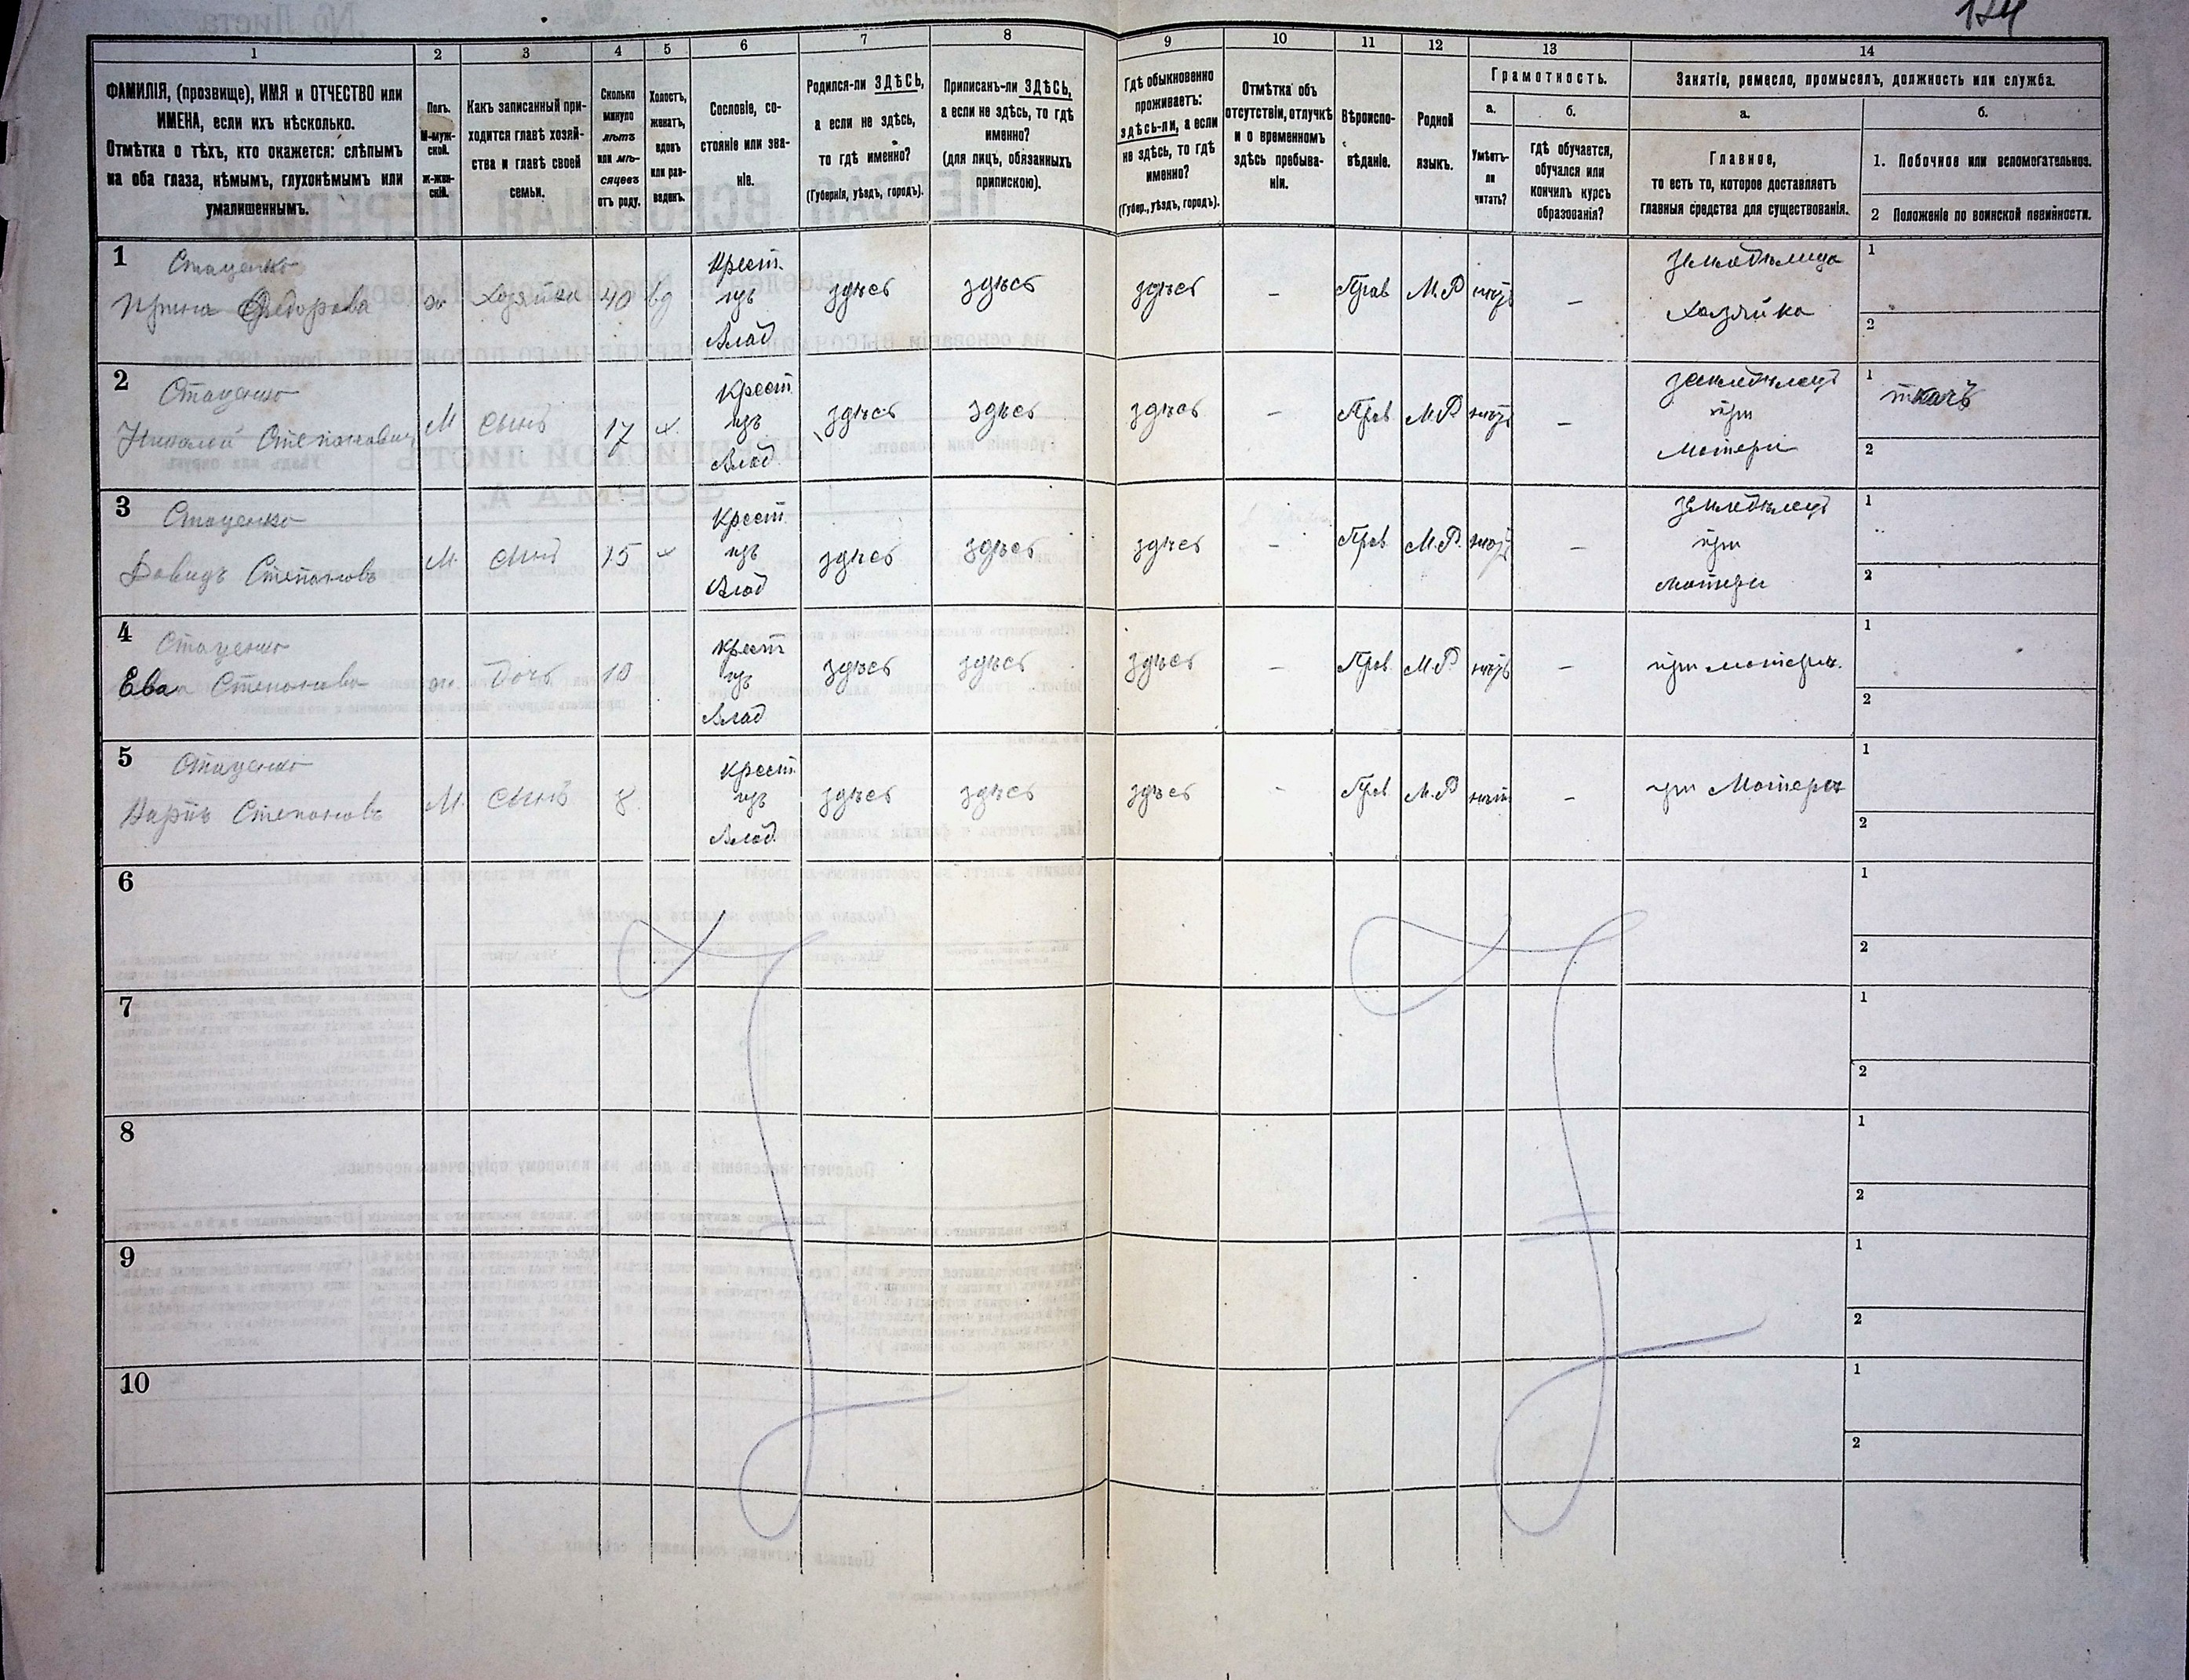 174
1 2 3 4 5 6 7 8 9 10 11 12 13 14
ФАМИЛІЯ, (прозвище), ИМЯ и ОТЧЕСТВО или
ИМЕНА, если ихъ нѣсколько.
Отмѣтка о тѣхъ, кто окажется: слѣпымъ
на оба глаза, нѣмымъ, глухонѣмымъ или
умалишеннымъ.
Полъ.
М-муж-
ской.
ж-жен-
скій.
Какъ записанный при-
ходится главѣ хозяй-
ства и главѣ своей
семьи.
Сколько
минуло
лѣтъ
или мѣ-
сяцевъ
отъ роду.
Холостъ,
женатъ,
вдовъ
или раз-
веденъ.
Сословіе, со-
стояніе или зва-
ніе.
Родился-ли ЗДѢСЬ,
а если не здѣсь,
то гдѣ именно?
(Губернія, уѣздъ, городъ).
Приписанъ-ли ЗДѢСЬ,
а если не здѣсь, то гдѣ
именно?
(для лицъ, обязанныхъ
припискою).
Гдѣ обыкновенно
проживаетъ:
здѣсь-ли, а если
не здѣсь, то гдѣ
именно?
(Губер., уѣздъ, городъ).
Отмѣтка объ
отсутствіи, отлучкѣ
и о временномъ
здѣсь пребыва-
ніи.
Вѣроиспо-
вѣданіе.
Родной
языкъ.
Грамотность.
а.
Умѣетъ-
ли
читать?
б.
гдѣ обучается,
обучался или
кончилъ курсъ
образованія?
Занятіе, ремесло, промыселъ, должность или служба.
а.
Главное,
то есть то, которое доставляетъ
главныя средства для существованія.
б.
1. Побочное или вспомогательное.
2 Положеніе по воинской повинности.
1 Стаценко
Ирина Федорова ж Хозяйка 40 вд
Крест.
изъ
Влад
здѣсь здѣсь здѣсь - Прав М.Р нѣтъ -
земледѣлица
хозяйка
1
2
2 Стаценко
Николай Степановичъ М сынъ 17 х.
Крест
изъ
Влад
здѣсь здѣсь здѣсь - Прав М.Р нѣтъ -
земледѣлецъ
при
матери
1 ткачъ
2
3 Стаценко
Давидъ Степановъ М. сынъ 15 х
Крест
изъ
Влад
здѣсь здѣсь здѣсь - Прав М.Р. нѣтъ -
земледѣлецъ
при
матери
1
2
4 Стаценко
Ева Степанова ж. Дочь 10
крест
изъ
Влад
здѣсь здѣсь здѣсь - Прав М.Р нѣтъ - при матери.
1
2
5 Стаценко
Карпъ Степановъ М. сынъ 8
крест
изъ
Влад.
здѣсь здѣсь здѣсь - Прав М.Р нѣтъ - при Матери
1
2
6
1
2
7
1
2
8
1
2
9
1
2
10
1
2